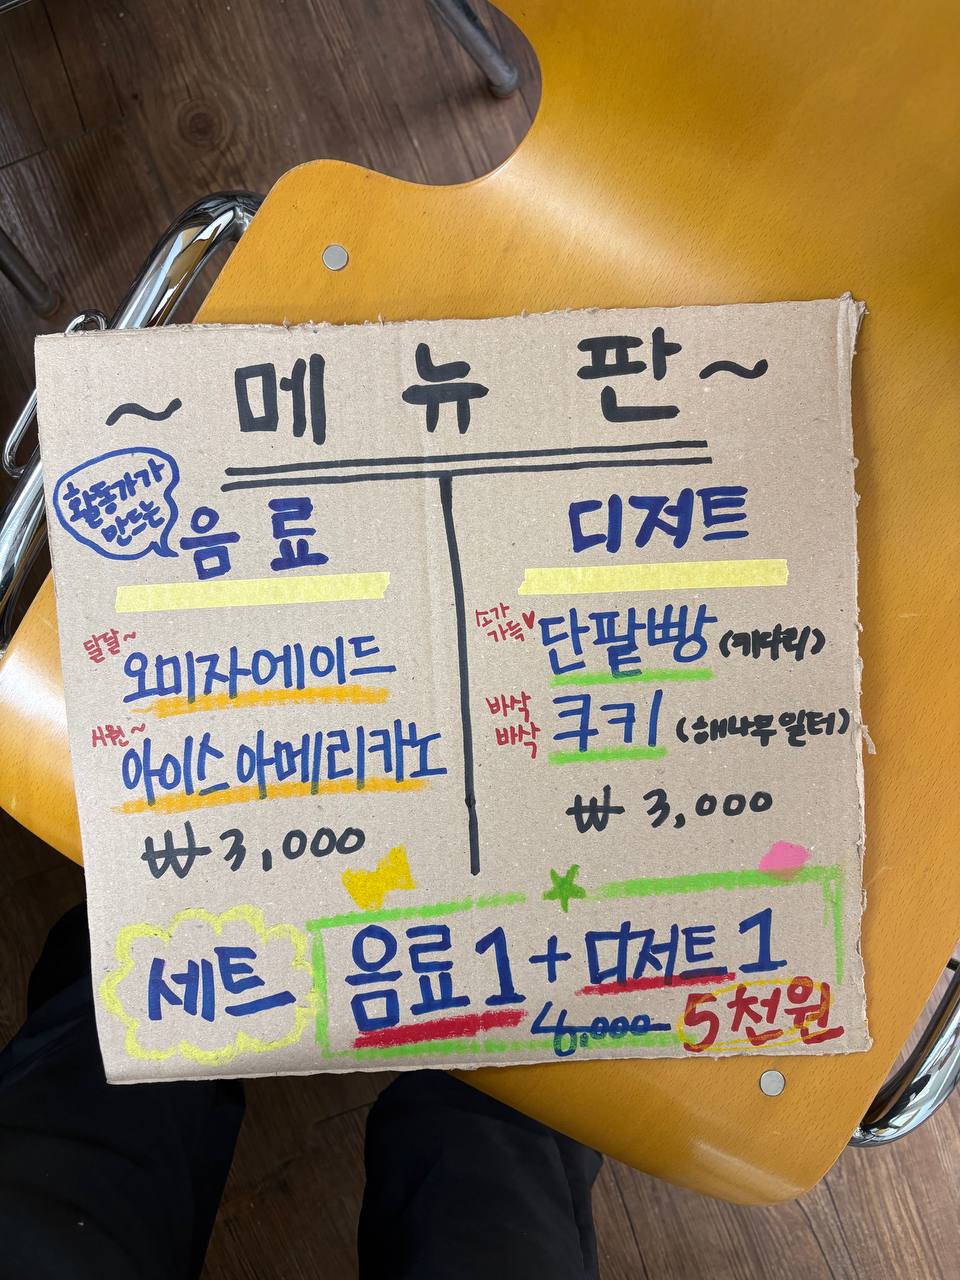 ~ 메 뉴 판 ~
활동가가
만드는
음 료
달달~
오미자에이드
시원~
아이스 아메리카노
₩ 3,000
디저트
소가
가득♥
단팥빵 (키다리)
바삭
바삭
쿠키 (해나무일터)
₩ 3,000
세트
음료 1 + 디저트 1
6,000
5천원